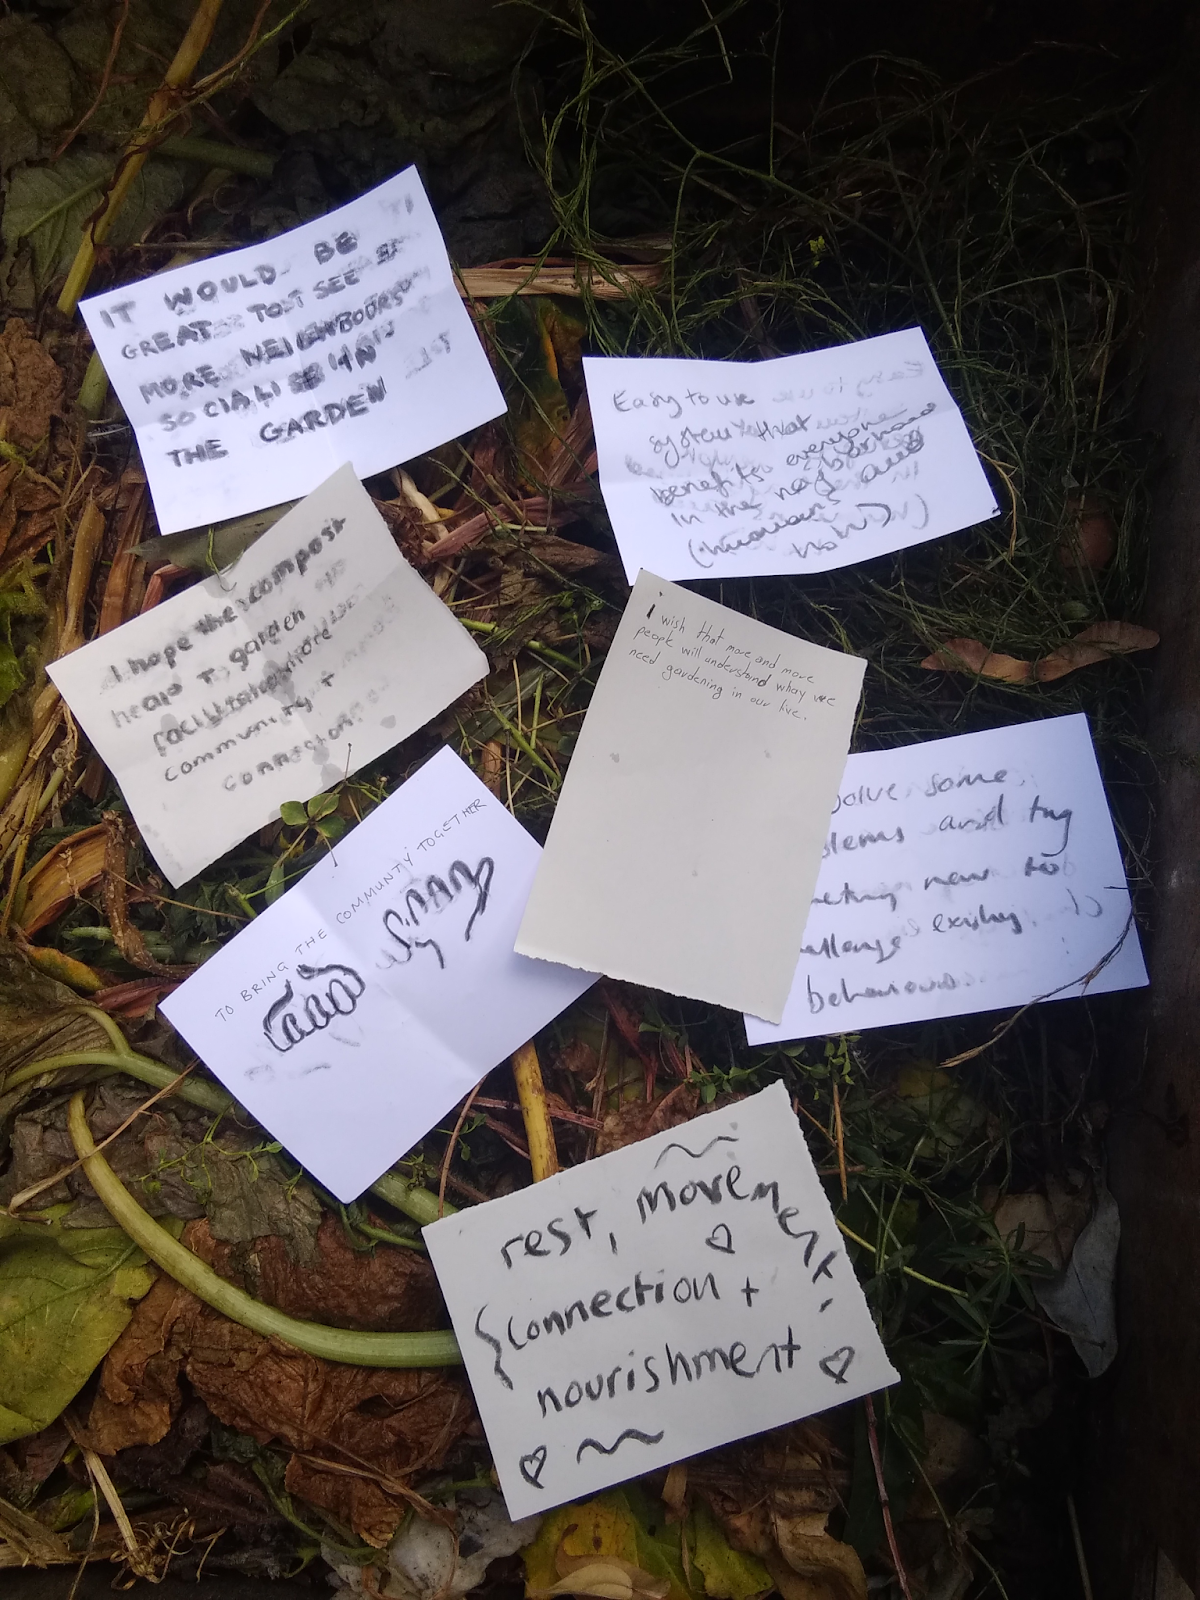 IT WOULD BE
GREAT TO SEE
MORE NEIGHBOORS
SOCIALISI IN
THE GARDEN
Easy to use
system that
benefits everyone
in the and
I hope the compost
heap + garden
more
community +
connection
i wish that more and more
people will understand whay we
need gardening in our live.
TO BRING THE COMMUNITY TOGETHER
olve some
blems and try
mething new to
allenge existing
behaviours.
rest, movement,
connection +
nourishment